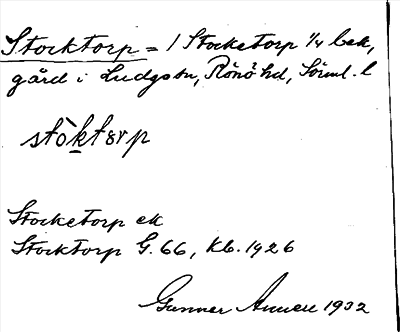 Stocktorp = / Stocketorp 1/4 bek,
gård i Ludgo sn, Rönö hd, Söml. l
stòktɷrp
Stocketorp ek
Stocktorp G. 66, kb. 1926
Gunnar 1932